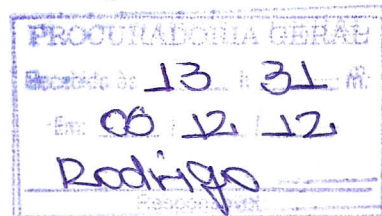 PROCURADORIA GERAL
Recebido às 13 h 31 m.
Em: 06 / 12 / 12
Rodrigo
Responsável